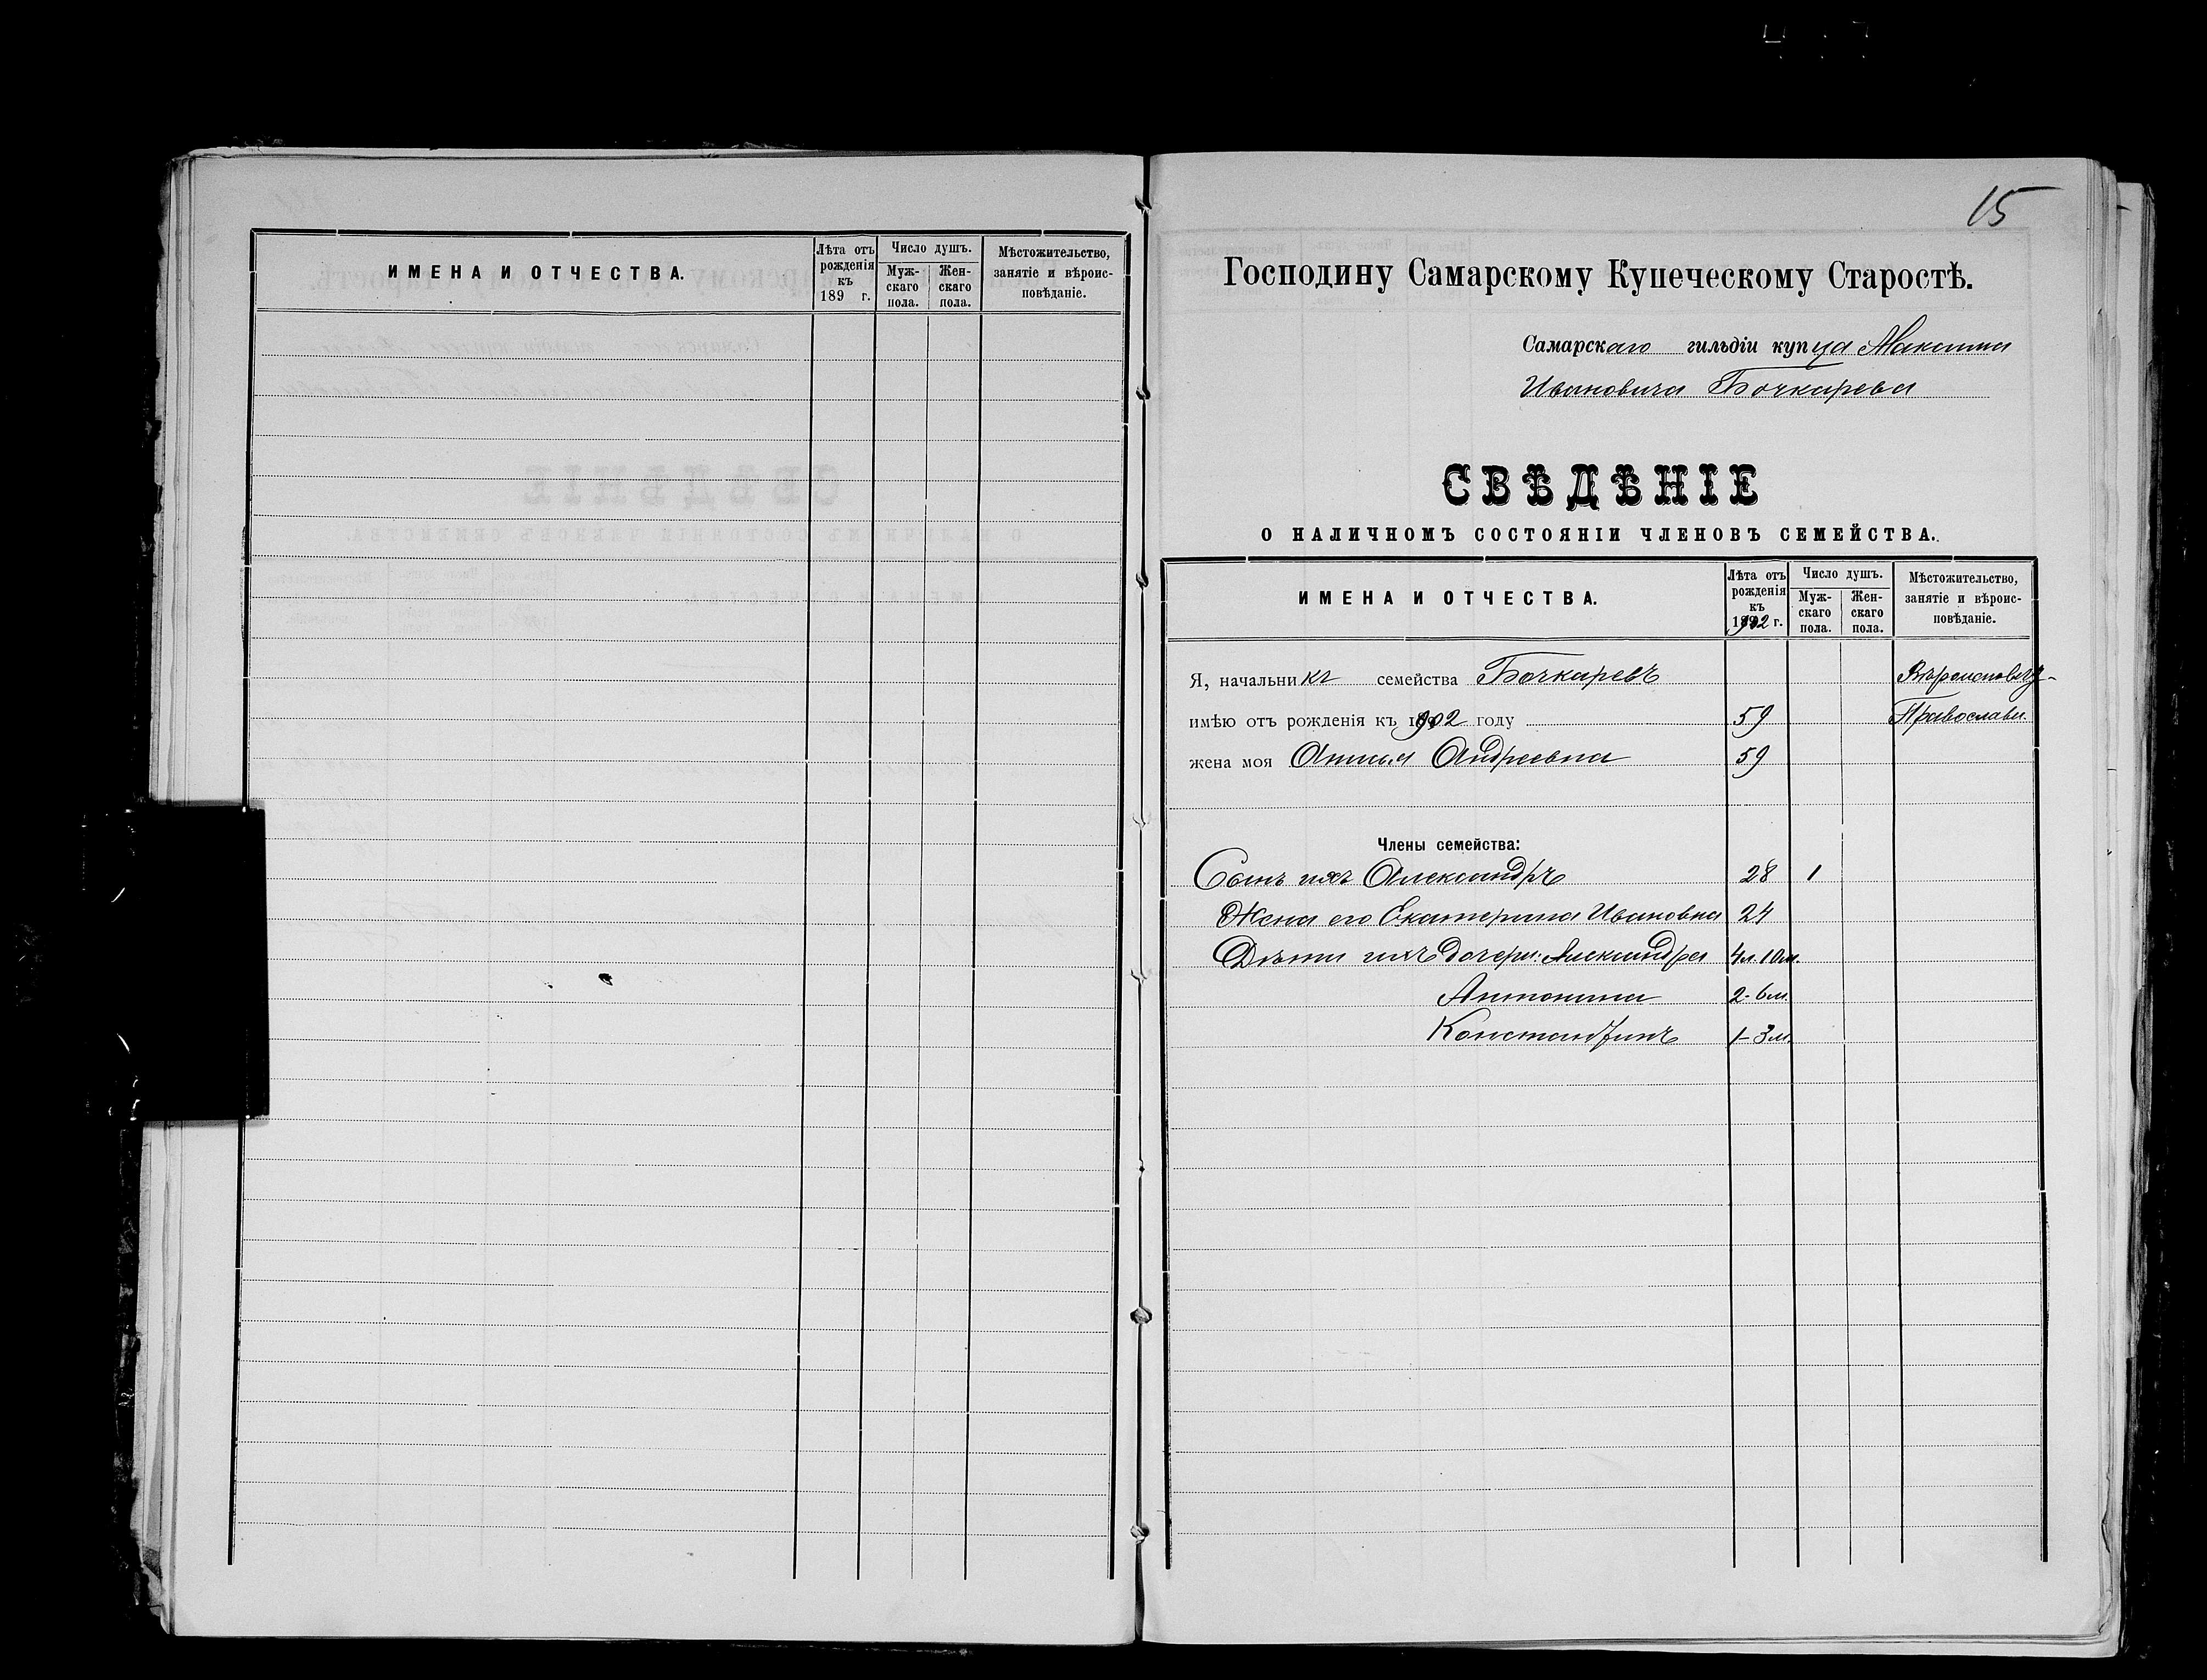 ИМЕНА И ОТЧЕСТВА.
Лѣта отъ рожденія къ 189 г.
Число душъ.
Мужскаго пола.
Женскаго пола.
Мѣстожительство, занятіе и вѣроисповѣданіе.
15
Господину Самарскому Купеческому Старостѣ.
Самарскаго гильдіи купца Максима
Ивановича Бочкарева
СВѢДѢНІЕ
О НАЛИЧНОМЪ СОСТОЯНІИ ЧЛЕНОВЪ СЕМЕЙСТВА.
ИМЕНА И ОТЧЕСТВА.
Лѣта отъ рожденія къ 1902 г.
Число душъ.
Мужскаго пола.
Женскаго пола.
Мѣстожительство, занятіе и вѣроисповѣданіе.
Я, начальникъ семейства Бочкаревъ
имѣю отъ рожденія къ 1902 году 59 Православн.
жена моя Андреевна 59
Члены семейства:
Сынъ ихъ Александръ 28 1
Жена его Екатерина Ивановна 24
Дѣти ихъ дочери: Александра 4л. 10м.
Антонина 2- 6м.
Константинъ 1- 3м.